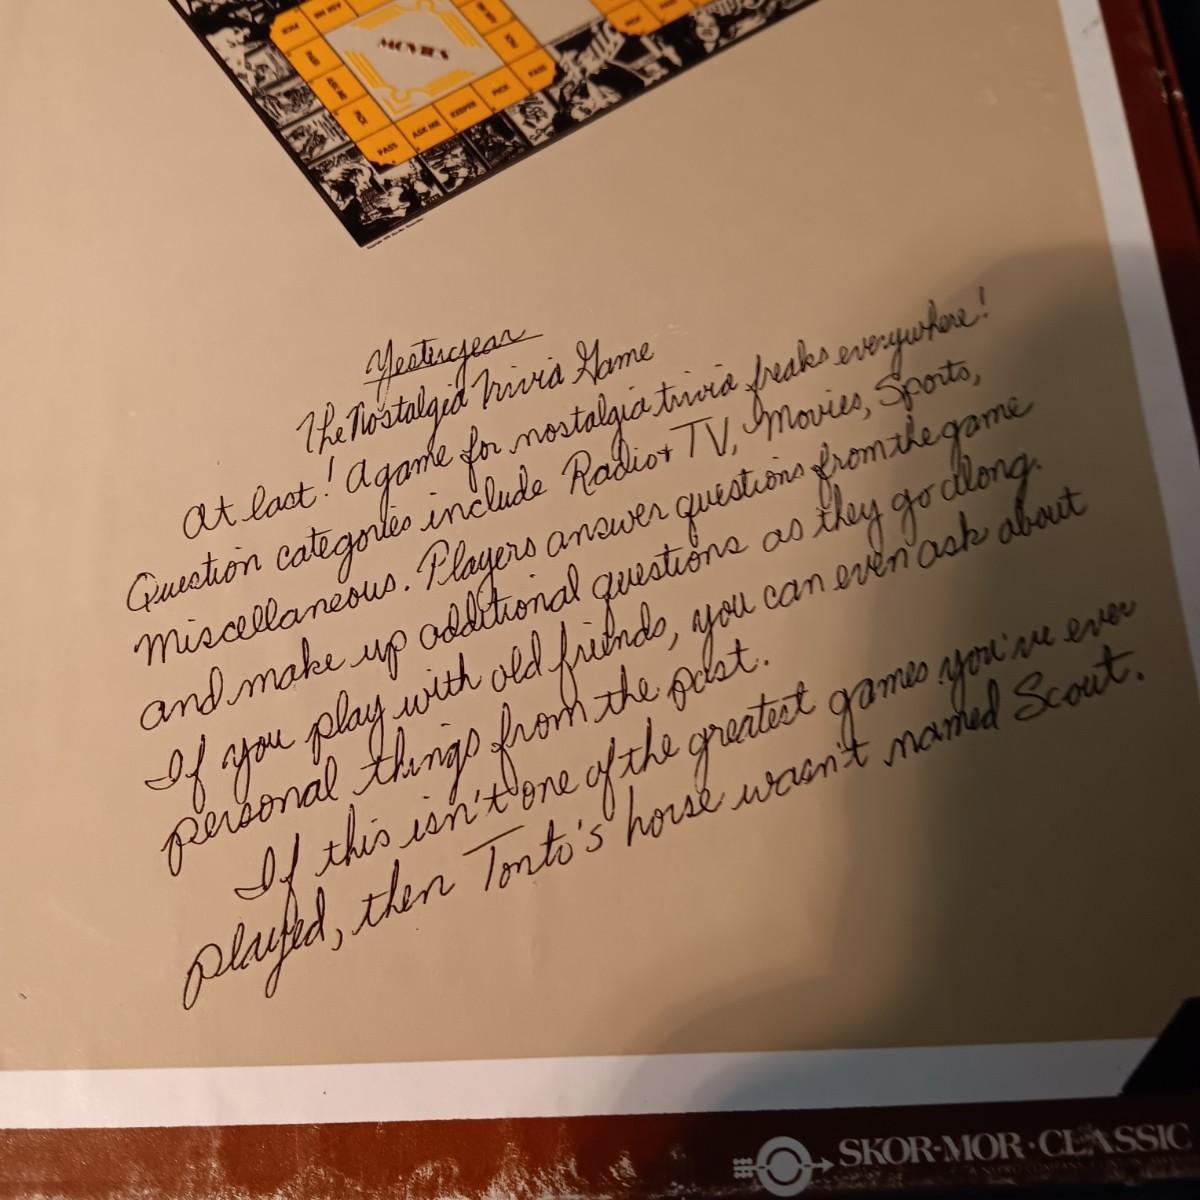 MOVIES
PASS
ASK ME
KEEPER
PICK
PASS
Yesteryear
The Nostalgia Trivia Game
At last! A game for nostalgia trivia freaks everywhere!
Question categories include Radio + TV, Movies, Sports,
Miscellaneous. Players answer questions from the game
and make up additional questions as they go along.
If you play with old friends, you can even ask about
personal things from the past.
If this isn't one of the greatest games you've ever
played, then Tonto's horse wasn't named Scout.
SKOR-MOR·CLASSIC